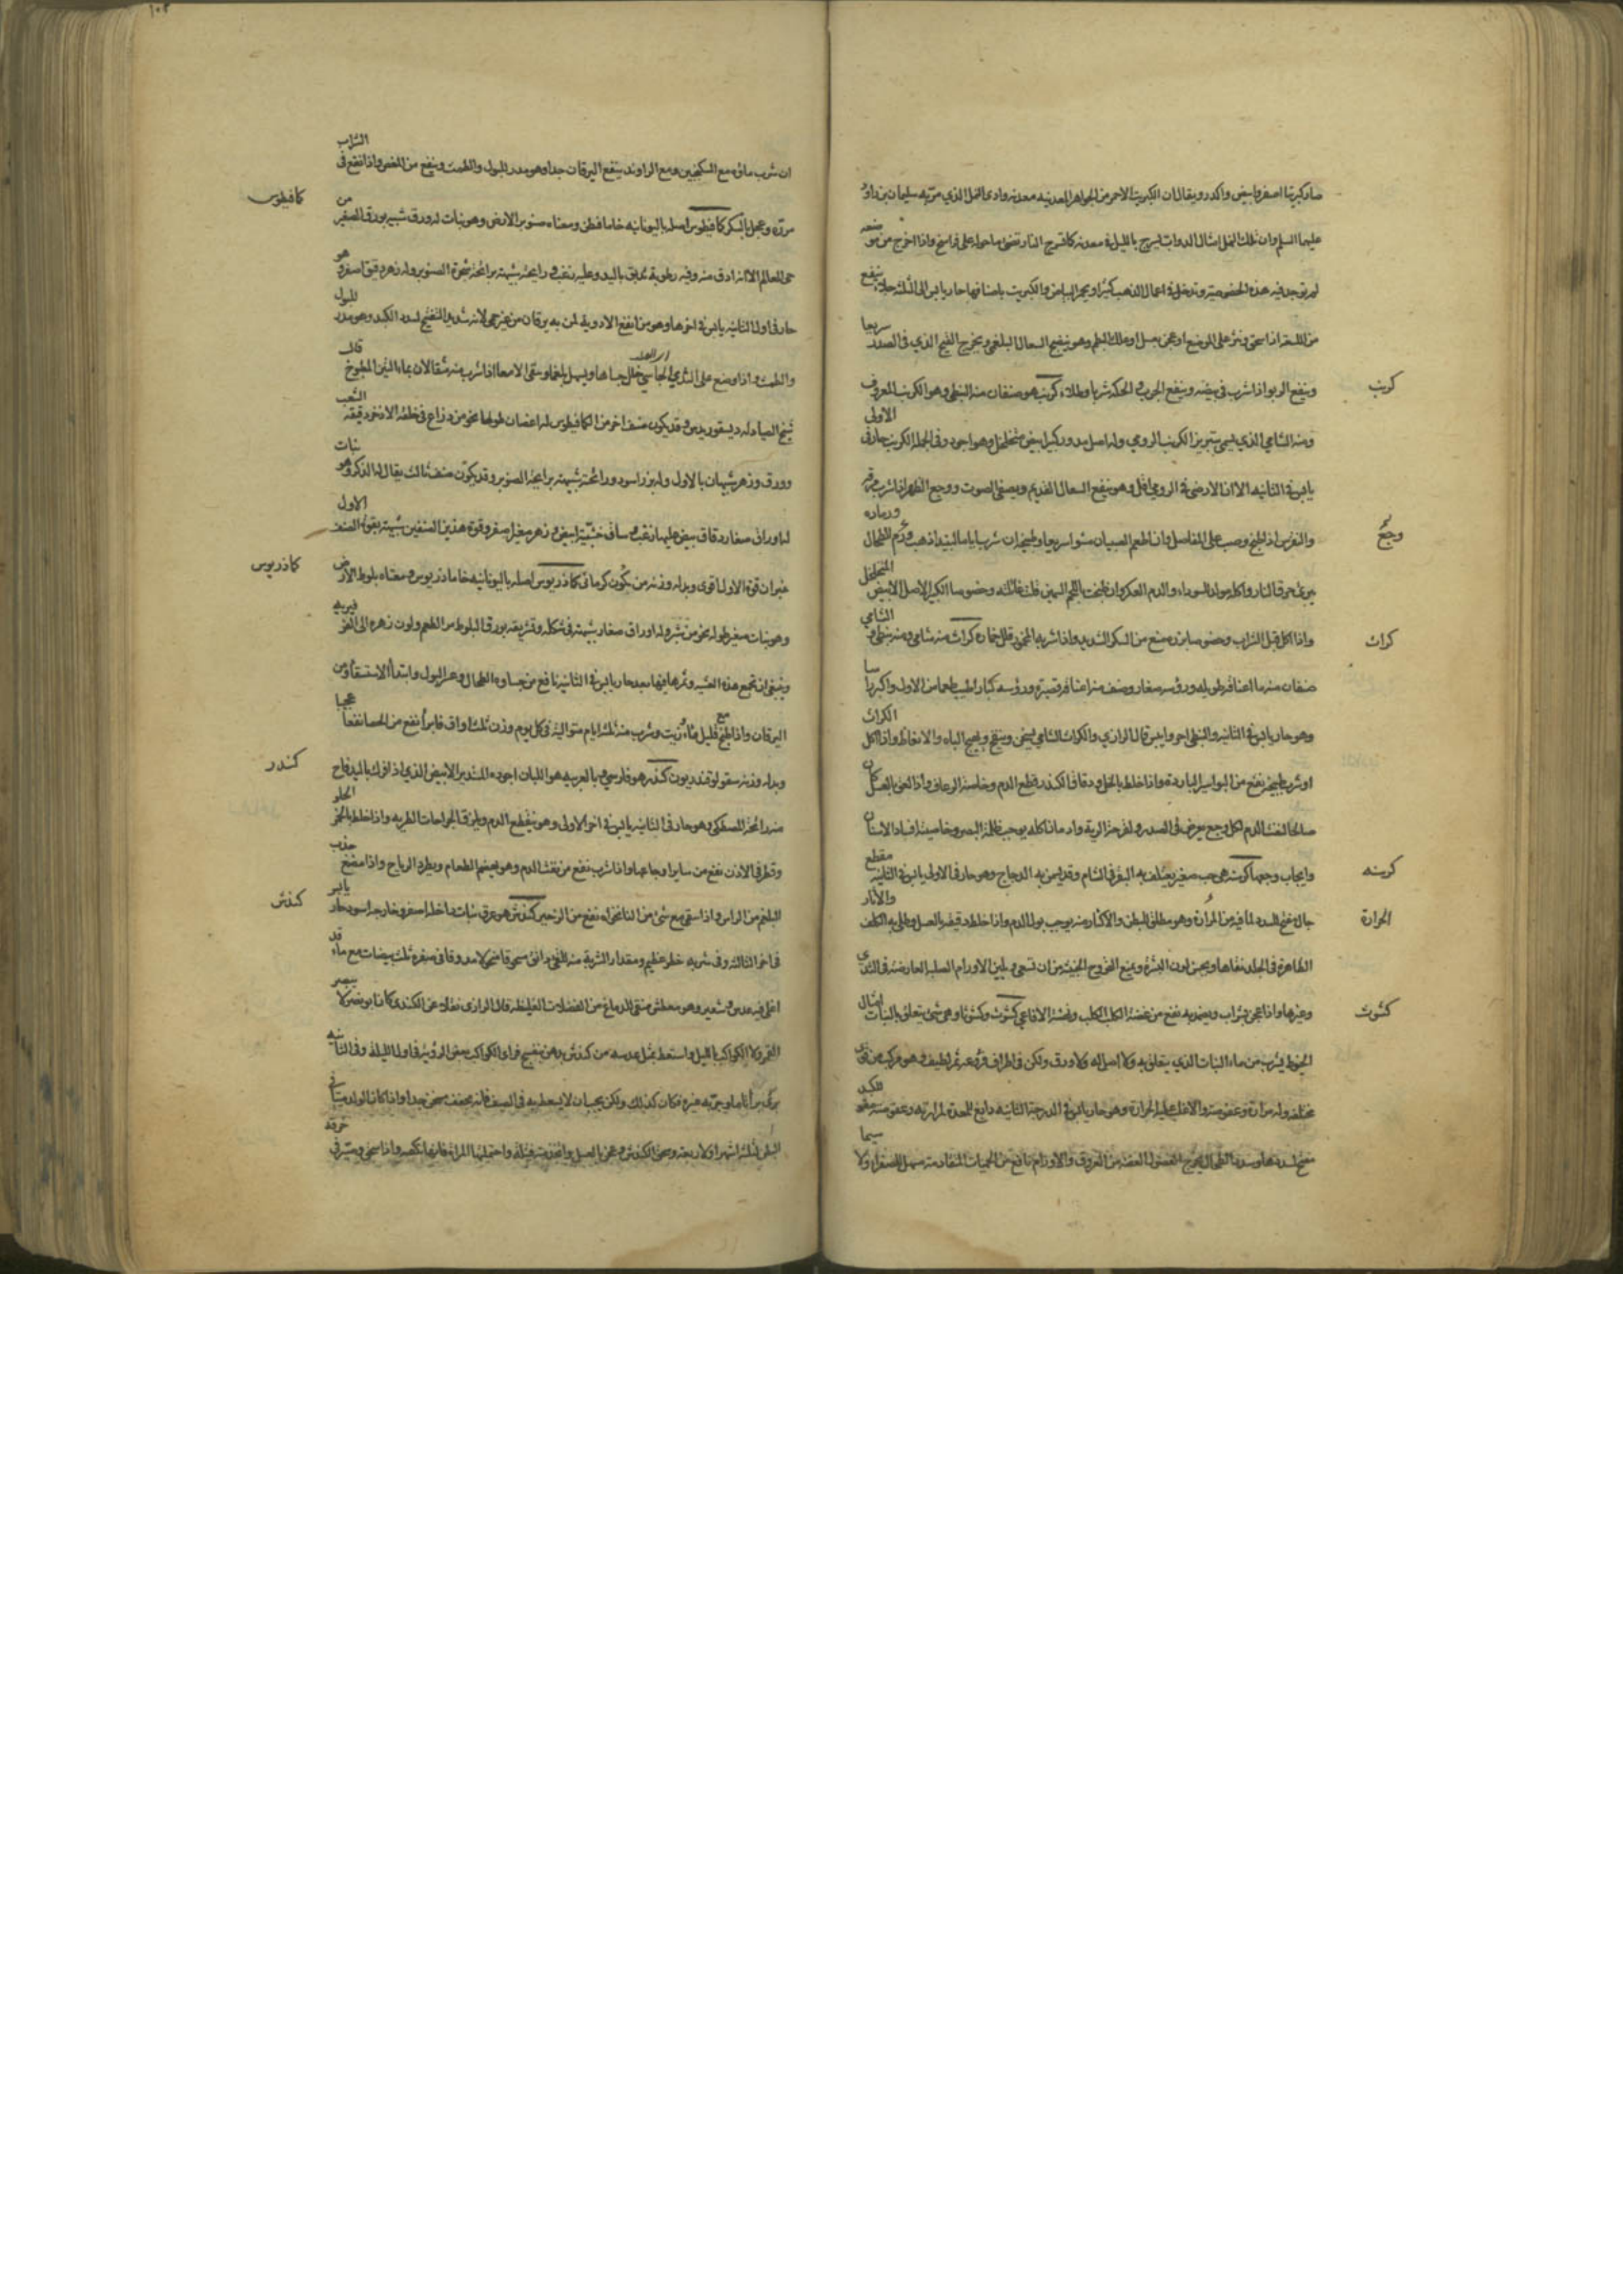 صار كبريتا اصفر وابيض واكدر ويقال ان الكبريت الاحمر من الجواهر المعدنيه معدنه وادى النمل الذي مر به سليمان بن داود
عليهما السلم وان ذلك النمل امثال الدواب يسرج بالليل في معدنه كما تسرج النار تضئ ما حوله على فراسخ واذا اخرج من موضعه
لم توجد فيه هذه الخصوصية ويدخل في اعمال الذهب كثيرا ويحمر البياض والكبريت باصنافها حار يابس الى الثلثه ينفع
وينفع الربو اذا شرب في بيضه وينفع الجرب والحكه شربا وطلاء كرنب هو صنفان منه النبطى وهو الكرنب المعروف
كرنب
ومنه الشامي الذي يسمى بتبريز الكرنب الرومي وله اصل مدور كبير ابيض متخلخل وهو اجود وفي الجمله الكرنب حار في الاولى
يابس في الثانيه الا ان الارضي في الرومي اقل وهو ينفع السعال القديم ويصفى الصوت ووجع الظهر اذا شرب مرقه
والنقرس اذا طبخ وصب على المفاصل وان اطعم الصبيان مشوا سريعا
ورماده
وجع
يبرئ حرق النار واكله يولد السوداء والدم العكر وان طبخت باللحم السمين قلت غائلته وخصوصا الكبير الاصل الابيض المتخلخل
واذا اكل قبل الشراب وخصوصا بزره منع من السكر الشديد واذا شربه المخمور قلل خماره كراث منه شامي ومنه نبطى و الشامي
كراث
صنفان منه ما اعناقه طويله ورؤسه صغار وصنف منه اعناقه قصيرة ورؤسه كبار اطيب طعما من الاول واكبر راسا
وهو حار يابس في الثانيه والنبطى احر وايبس قال الرازي والكراث الشامي يسخن وينفخ ويهيج الباه والانعاظ واذا اكل الكراث
او شرب طبيخه نفع من البواسير البارده واذا خلط بالخل ودقاق الكندر قطع الدم وخاصه الرعاف واذا لعق بالعسل كان
صالحا لنفث الدم لكل وجع يعرض في الصدر ولقرحة الرية وادمان اكله يوجب ظلمة البصر وخاصيته افساد الاسنان
وايجاب وجعها كرسنه هي حب صغير يعتلف به البقر في الشام وقد يسمن به الدجاج وهو حار في الاولى يابس في الثانيه مقطع
كرسنه
جال مفتح للسدد لما فيه من المرارة وهو مطلق للبطن والاكثار منه يوجب بول الدم واذا خلط دقيقه بالعسل وطلى به الكلف والاثار
الحرارة
الظاهرة في الجلد نقاها ويحسن لون البشرة ويمنع القروح الخبيثه من ان تسعى ويلين الاورام الصلبه العارضه في الثدي
وغيرها واذا عجن بشراب وضمد به نفع من عضة الكلب الكلب ونهشة الافاعي كشوث وكشوثا وهي شئ يتعلق بالنبات امثال
كشوث
الخيوط يشرب من ماء النبات الذي يتعلق به ولا اصل له ولا ورق ولكن في اطراف فروعه ثمر لطيف وهو مركب من قوى
مختلفه وله مرارة وعفوصة والاغلب عليه الحرارة وهو حار يابس في الدرجة الثانيه دابغ للمعدة لمرارته وعفوصته مقو للكبد
مفتح لسددها وسدد الطحال يخرج الفضول العفنه من العروق والاورام نافع من الحميات المتقادمة مسهل للصفراء ولا سيما
١٠٢
ان شرب ماؤه مع السكنجبين ومع الراوند ينفع اليرقان جدا وهو مدر للبول والطمث وينفع من المغص واذا نقع في الشراب
كافيطوس اصله باليونانيه خاما فيطس ومعناه صنوبر الارض وهو نبات له ورق شبيه بورق الصغير من
كمافيطوس
حي العالم الا انه ادق منه وفيه رطوبة تدبق باليد وعليه زغب ورايحته شبيهة برائحة شجرة الصنوبر وله زهر دقيق اصفر وهو
حار في اول الثانيه يابس في اخرها وهو من انفع الادوية لمن به يرقان من غير حمى لانه شديد التفتيح لسدد الكبد وهو مدر للبول
والطمث واذا وضع على الثدي الجاسي حلل جساها ويسهل بلغما وينقى الامعا اذا شرب منه مثقالان بماء التين المطبوخ قال
ديسقوريدس وقد يكون صنف اخر من الكمافيطوس له اغصان طولها نحو من ذراع في خلقة الاذخر دقيقة الشعب
وورق وزهر شبيهان بالاول وله بزر اسود ورائحته شبيهة برايحة الصنوبر وقد يكون صنف ثالث يقال له الذكر وهو نبات
له اوراق صغار دقاق بيض عليها زغب وساق خشنة ابيض وزهر صغير اصفر وقوة هذين الصنفين شبيهة بقوة الصنف الاول
غير ان قوة الاول اقوى وبدله وزنه من كمون كرماني كماذريوس اصله باليونانيه خاماذريوس ومعناه بلوط الارض
كماذريوس
وهو نبات صغير طوله نحو من شبر وله اوراق صغار شبيهة في شكله وتشريفه بورق البلوط مر الطعم ولون زهره الى الفرفيرية
وينبغى ان تجمع هذه العشبه وثمرها فيها بعد حار يابس في الثانيه نافع من جساوة الطحال وعسر البول وابتدأ الاستسقاء ومن
اليرقان واذا طبخ مع قليل ماء وزيت وشرب منه ثلثة ايام متوالية في كل يوم وزن ثلث اواق فاترا نفع من الحصا نفعا عجيبا
وبدله وزنه سقولوقندريون كندر هو فارسي وبالعربيه هو اللبان اجوده المستدير الابيض الذي اذا فرك باليد فاح
كندر
منه رائحة المصطكى وهو حار في الثانيه يابس في اخر الاولى وهو يقطع الدم ويلزق الجراحات الطريه واذا خلط بالخمر الحلو
وقطر في الاذن نفع من ساير اوجاعها واذا شرب نفع من نفث الدم وهو يهضم الطعام ويطرد الرياح واذا مضغ جذب
البلغم من الراس واذا سقى مع شئ من النانخواه نفع من الزحير كندش هو عرق نبات داخله اصفر وخارجه اسود حار يابس
كندش
في اخر الثالثه وفي شربه خطر عظيم ومقدار الشربة منه للقئ دانق مسحوقا منخولا مدوقا في صفرة ثلث بيضات مع ماء قد
اغلى فيه عدس وشعير وهو معطش منقى للدماغ من الفضلات الغليظه قال الرازى نقلا عن الكندى كان ابو نصر لا يبصر
القمر ولا الكواكب بالليل واستعط بمثل عدسه من كندش بدهن بنفسج فراى الكواكب بعض الرؤية في اول الليلة وفي الثانيه
برئ برأ تاما وجربه غيره فكان كذلك ولكن يجب ان لا يسعط به في الصيف فانه يجفف يسخن جدا واذا كان الولد ميتا في
البطن لثلثة اشهر او لاربعة وسحق الكندش وعجن بالعسل واتخذ منه فتيله واحتملتها المرأة فانها تلقيه واذا سحق وصير في خرقه